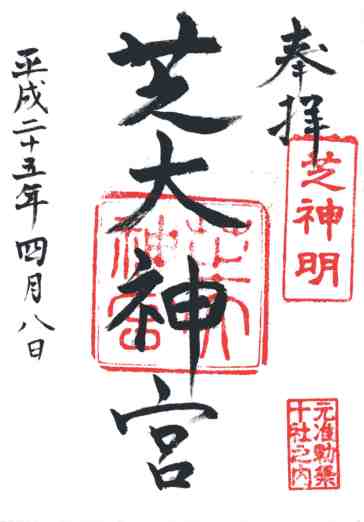 奉拝
芝神明
元准勅祭
十社之内
芝大神宮
芝大
神宮
平成二十五年四月八日